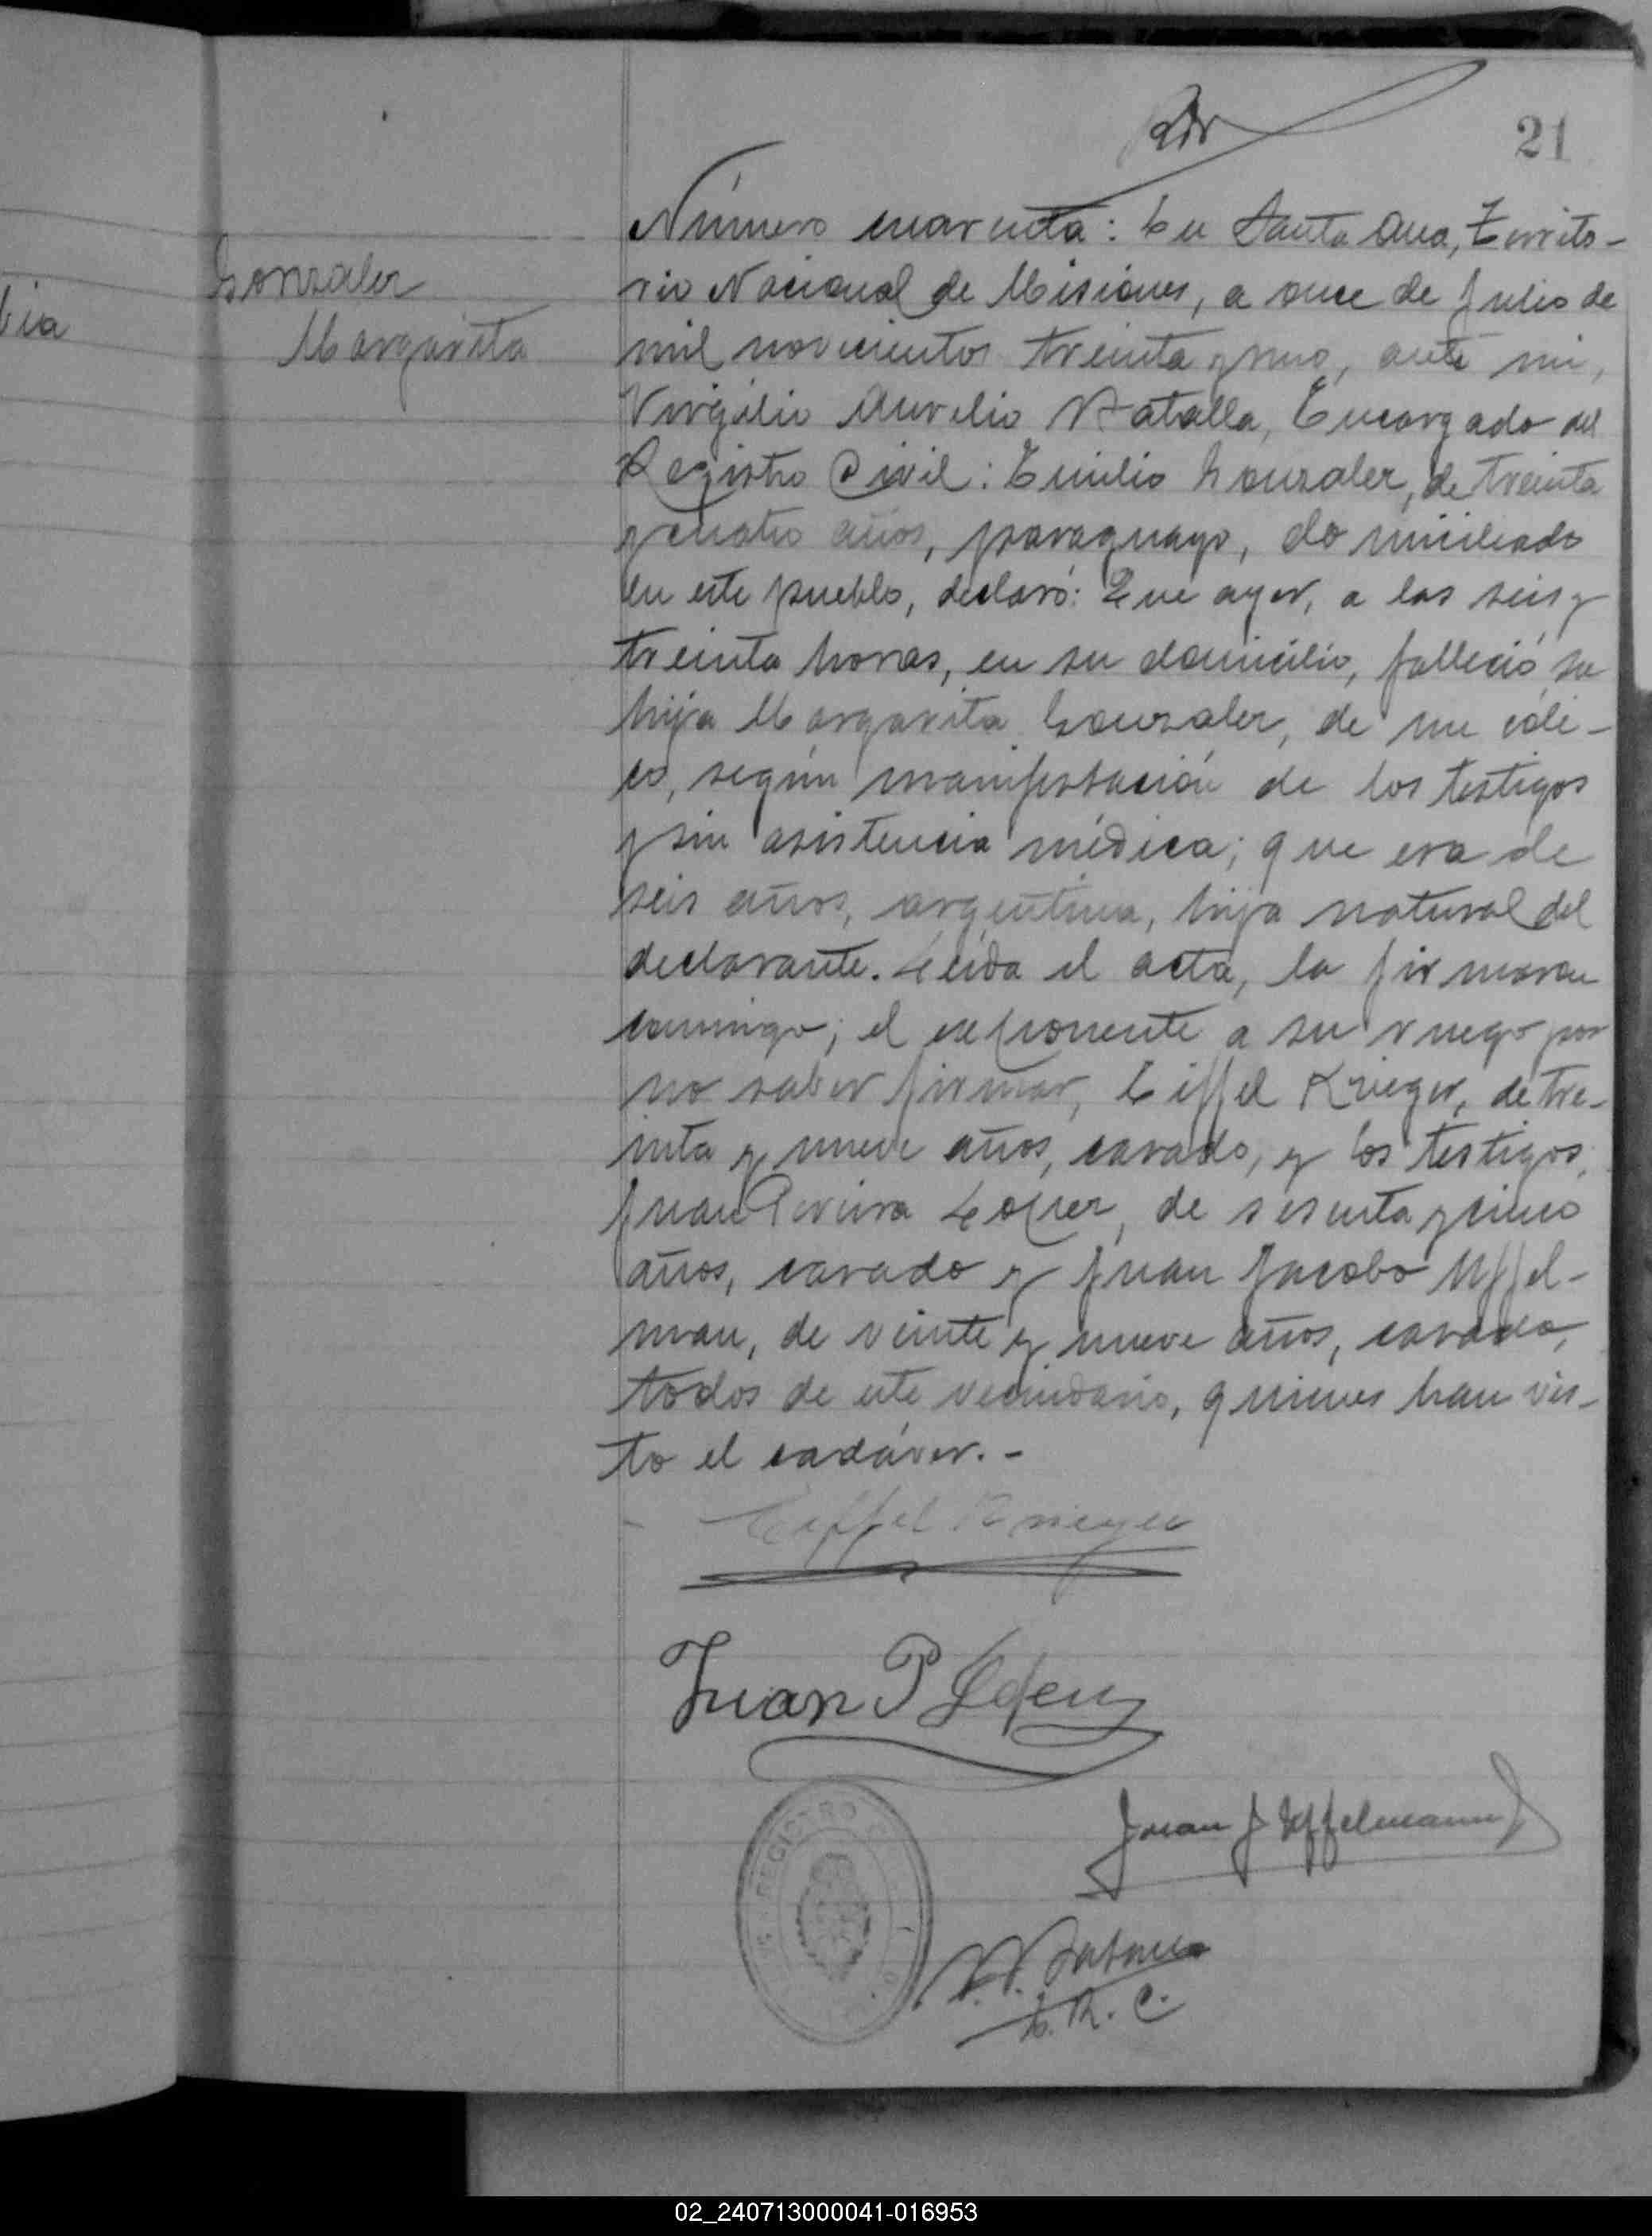 21
bia
Gonzalez
Margarita
Número cuarenta: En Santa Ana, Territo-
rio Nacional de Misiones, a once de Julio de
mil novecientos treinta y uno, ante mi,
Virgilio Aurelio Natalla, Encargado del
Registro Civil: Emilio Gonzalez, de treinta
y cuatro años, paraguayo, domiciliado
en este pueblo, declaró: Que ayer, a las seis y
treinta horas, en su domicilio, falleció su
hija Margarita Gonzalez, de un cóli-
co, según manifestación de los testigos
y sin asistencia médica; que era de
seis años, argentina, hija natural del
declarante. Leída el acta, la firmaron
conmigo; el exponente a su ruego por
no saber firmar, Eiffel Krieger, de tre-
inta y nueve años, casado, y los testigos,
Juan Pereira Lopez, de sesenta y cinco
años, casado y Juan Jacobo Uffel-
man, de veinte y nueve años, casado,
todos de este vecindario, quienes han vis-
to el cadáver.-
Eiffel Krieger
Juan P Lopez
Juan J Uffelmann
REGISTRO
E. R. C.
02_240713000041-016953